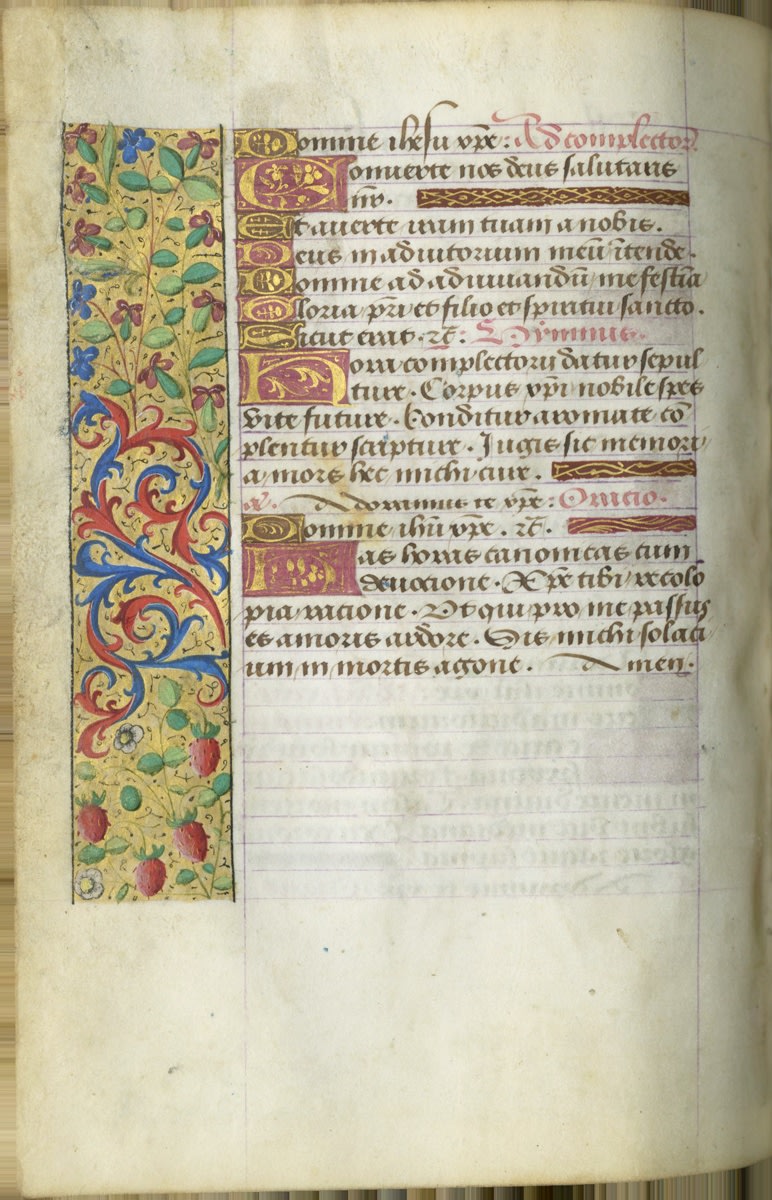 Domine ihesu xpe: Ad complector.
Conuerte nos deus salutaris
nr̄.
Et auerte iram tuam a nobis.
Deus in adiutorium meū ītende.
Domine ad adiuuandū me festīa
Gloria pr̄i et filio et spiritui sancto.
Sicut erat. ⁊c̄: Hymnus.
Hora complectorii datur sepul
ture. Corpus xpī nobile spes
vite future. Conditur aromate cō
plentur scripture. Iugis sit memori
a mors hec michi cure.
Adoramus te xpe: Oracio.
Domine ihū xpe. ⁊c̄.
Has horas canonicas cum
deuocione. Xpe tibi recolo
pia racione. Vt qui pro me passus
es amoris ardore. Sis michi solaci
um in mortis agone. Amen.